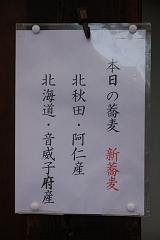 本日の蕎麦 新蕎麦
北秋田・阿仁産
北海道・音威子府産